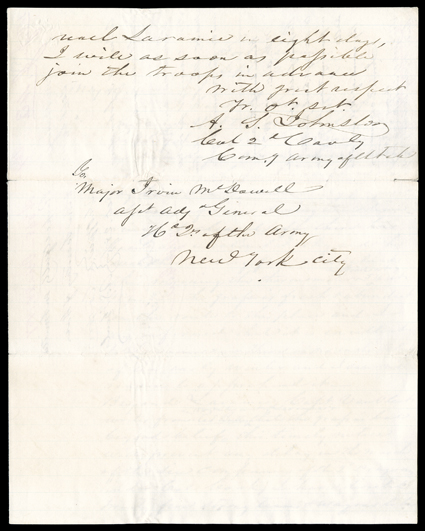 reach Laramie in eight days,
I will as soon as possible
join the troops in advance
With great respect
Yr. Ob. Svt
A. S. Johnston
Col 2d Cavly
Comg Army of Utah
To
Major Irvin McDowell
Asst Adj General
Hd Qrs of the Army
New York City